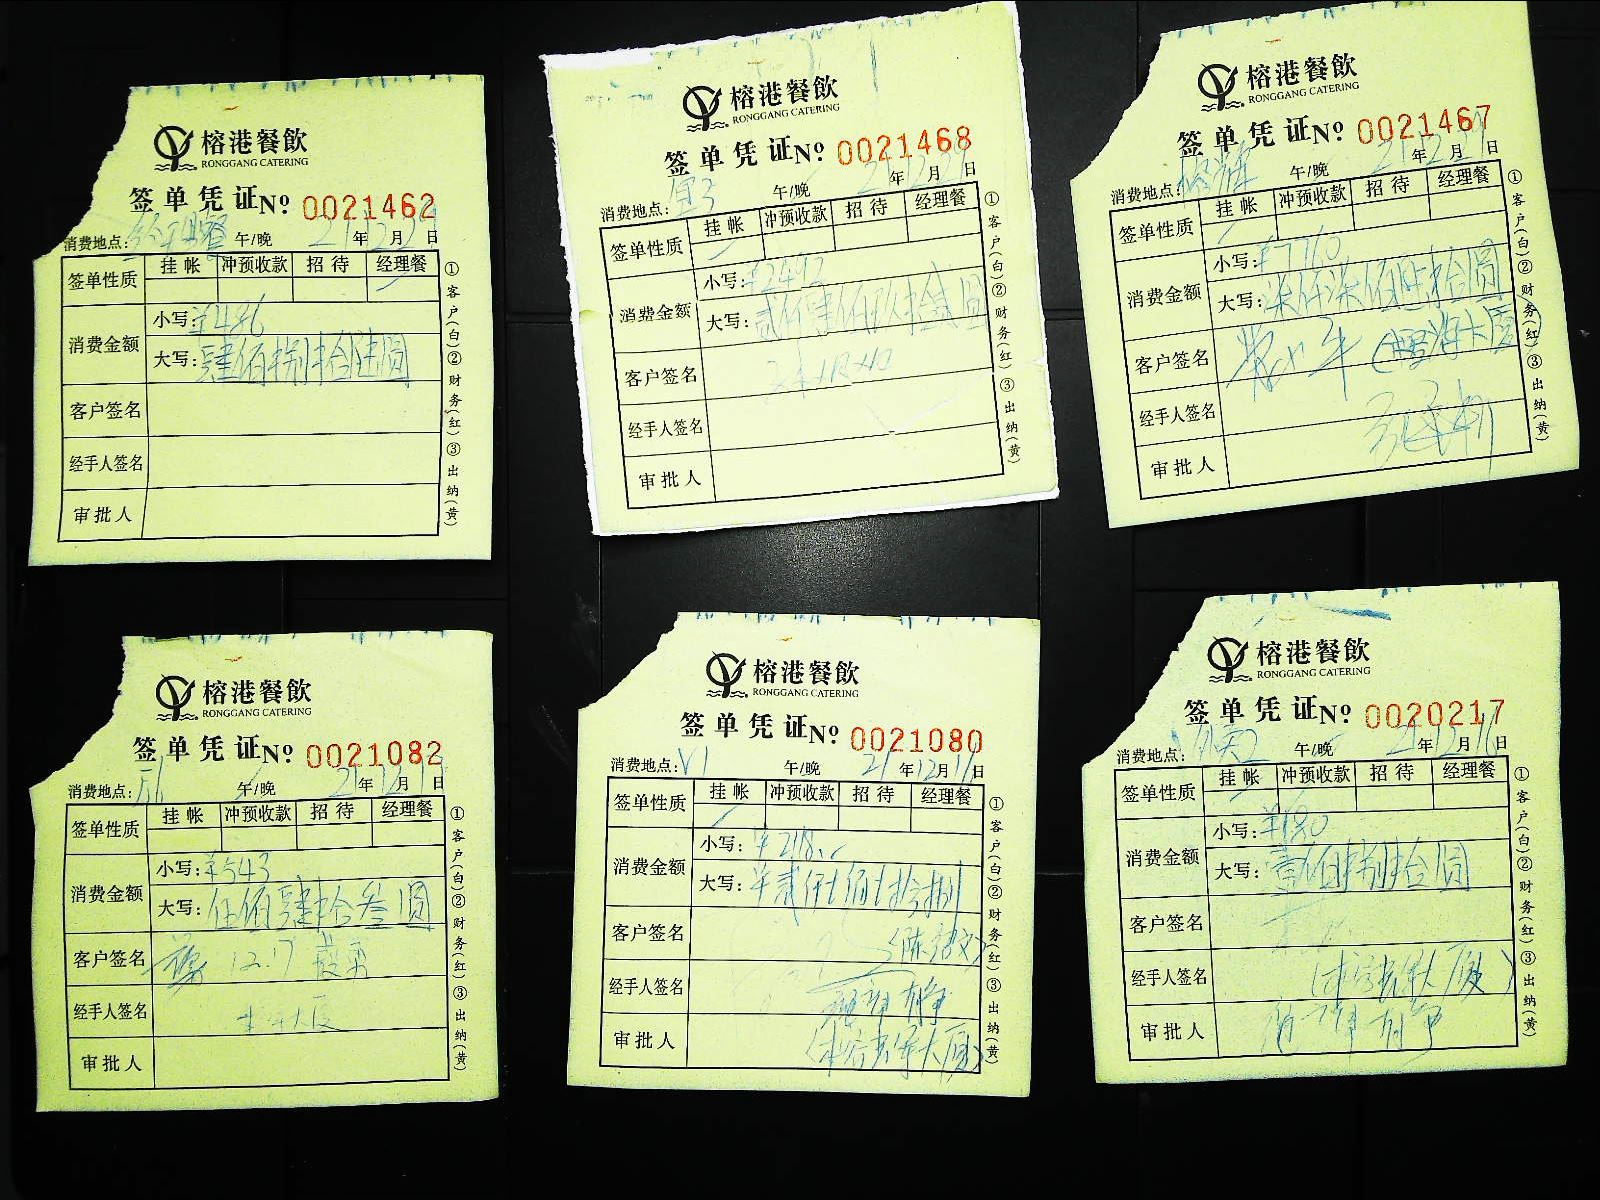 榕港餐飲
RONGGANG CATERING
签单凭证№ 0021462
消费地点: 经理餐 午/晚 21年12月 日
签单性质 挂帐 冲预收款 招待 经理餐
消费金额 小写: ¥486
大写: 肆佰捌拾陆圆
客户签名
经手人签名
审批人
①客户(白)②财务(红)③出纳(黄)
榕港餐飲
RONGGANG CATERING
签单凭证№ 0021468
消费地点: 午/晚 年 月 日
签单性质 挂帐 冲预收款 招待 经理餐
消费金额 小写: ¥2492
大写: 贰仟肆佰玖拾贰圆
客户签名
经手人签名
审批人
①客户(白)②财务(红)③出纳(黄)
榕港餐飲
RONGGANG CATERING
签单凭证№ 0021467
消费地点: 午/晚 21年12月 日
签单性质 挂帐 冲预收款 招待 经理餐
消费金额 小写: ¥7710
大写: 柒仟柒佰壹拾圆
客户签名
经手人签名
审批人
①客户(白)②财务(红)③出纳(黄)
榕港餐飲
RONGGANG CATERING
签单凭证№ 0021082
消费地点: 午/晚 21年12月17日
签单性质 挂帐 冲预收款 招待 经理餐
消费金额 小写: ¥543
大写: 伍佰肆拾叁圆
客户签名 12.17
经手人签名
审批人
①客户(白)②财务(红)③出纳(黄)
榕港餐飲
RONGGANG CATERING
签单凭证№ 0021080
消费地点: V1 午/晚 21年12月17日
签单性质 挂帐 冲预收款 招待 经理餐
消费金额 小写: ¥2118
大写:
客户签名
经手人签名
审批人
①客户(白)②财务(红)③出纳(黄)
榕港餐飲
RONGGANG CATERING
签单凭证№ 0020217
消费地点: 午/晚 21年12月 日
签单性质 挂帐 冲预收款 招待 经理餐
消费金额 小写: ¥180
大写: 壹佰捌拾圆
客户签名
经手人签名
审批人
①客户(白)②财务(红)③出纳(黄)